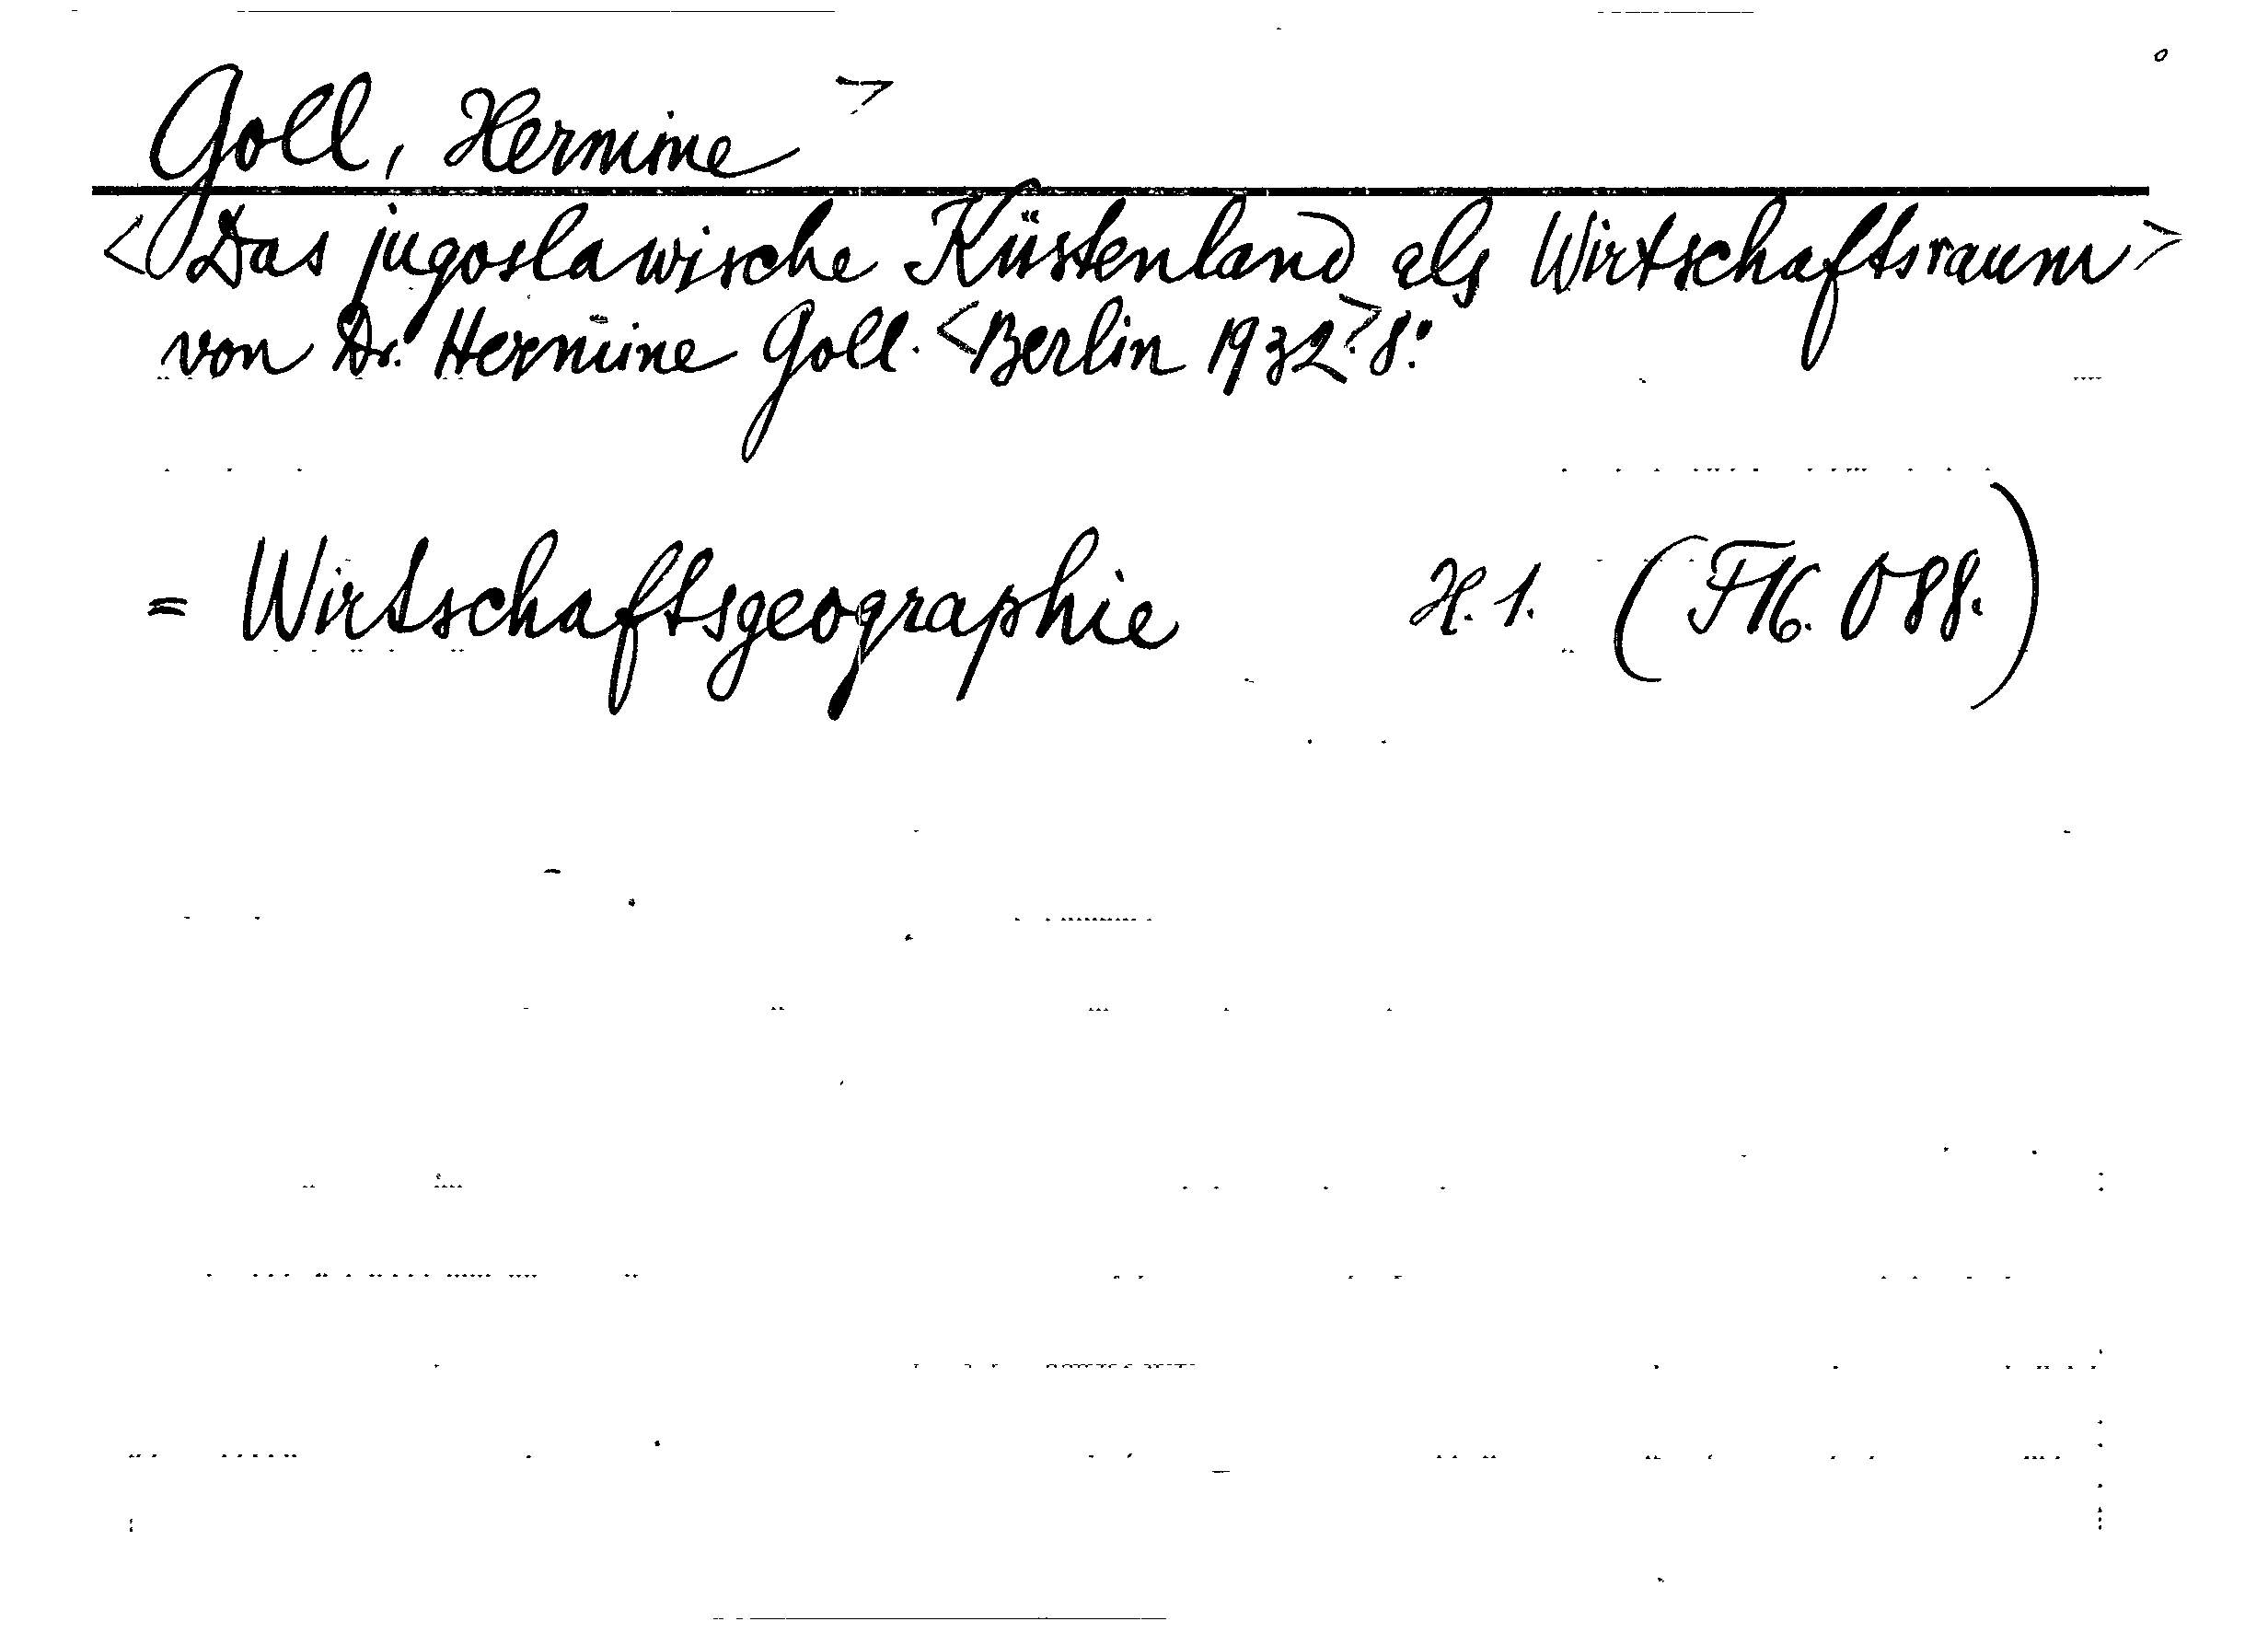 Goll, Hermine >
<Das jugoslawische Küstenland als Wirtschaftsraum>
von Dr. Hermine Goll. <Berlin 1932.> 8.°
= Wirtschaftsgeographie H. 1. (F16. 088.)